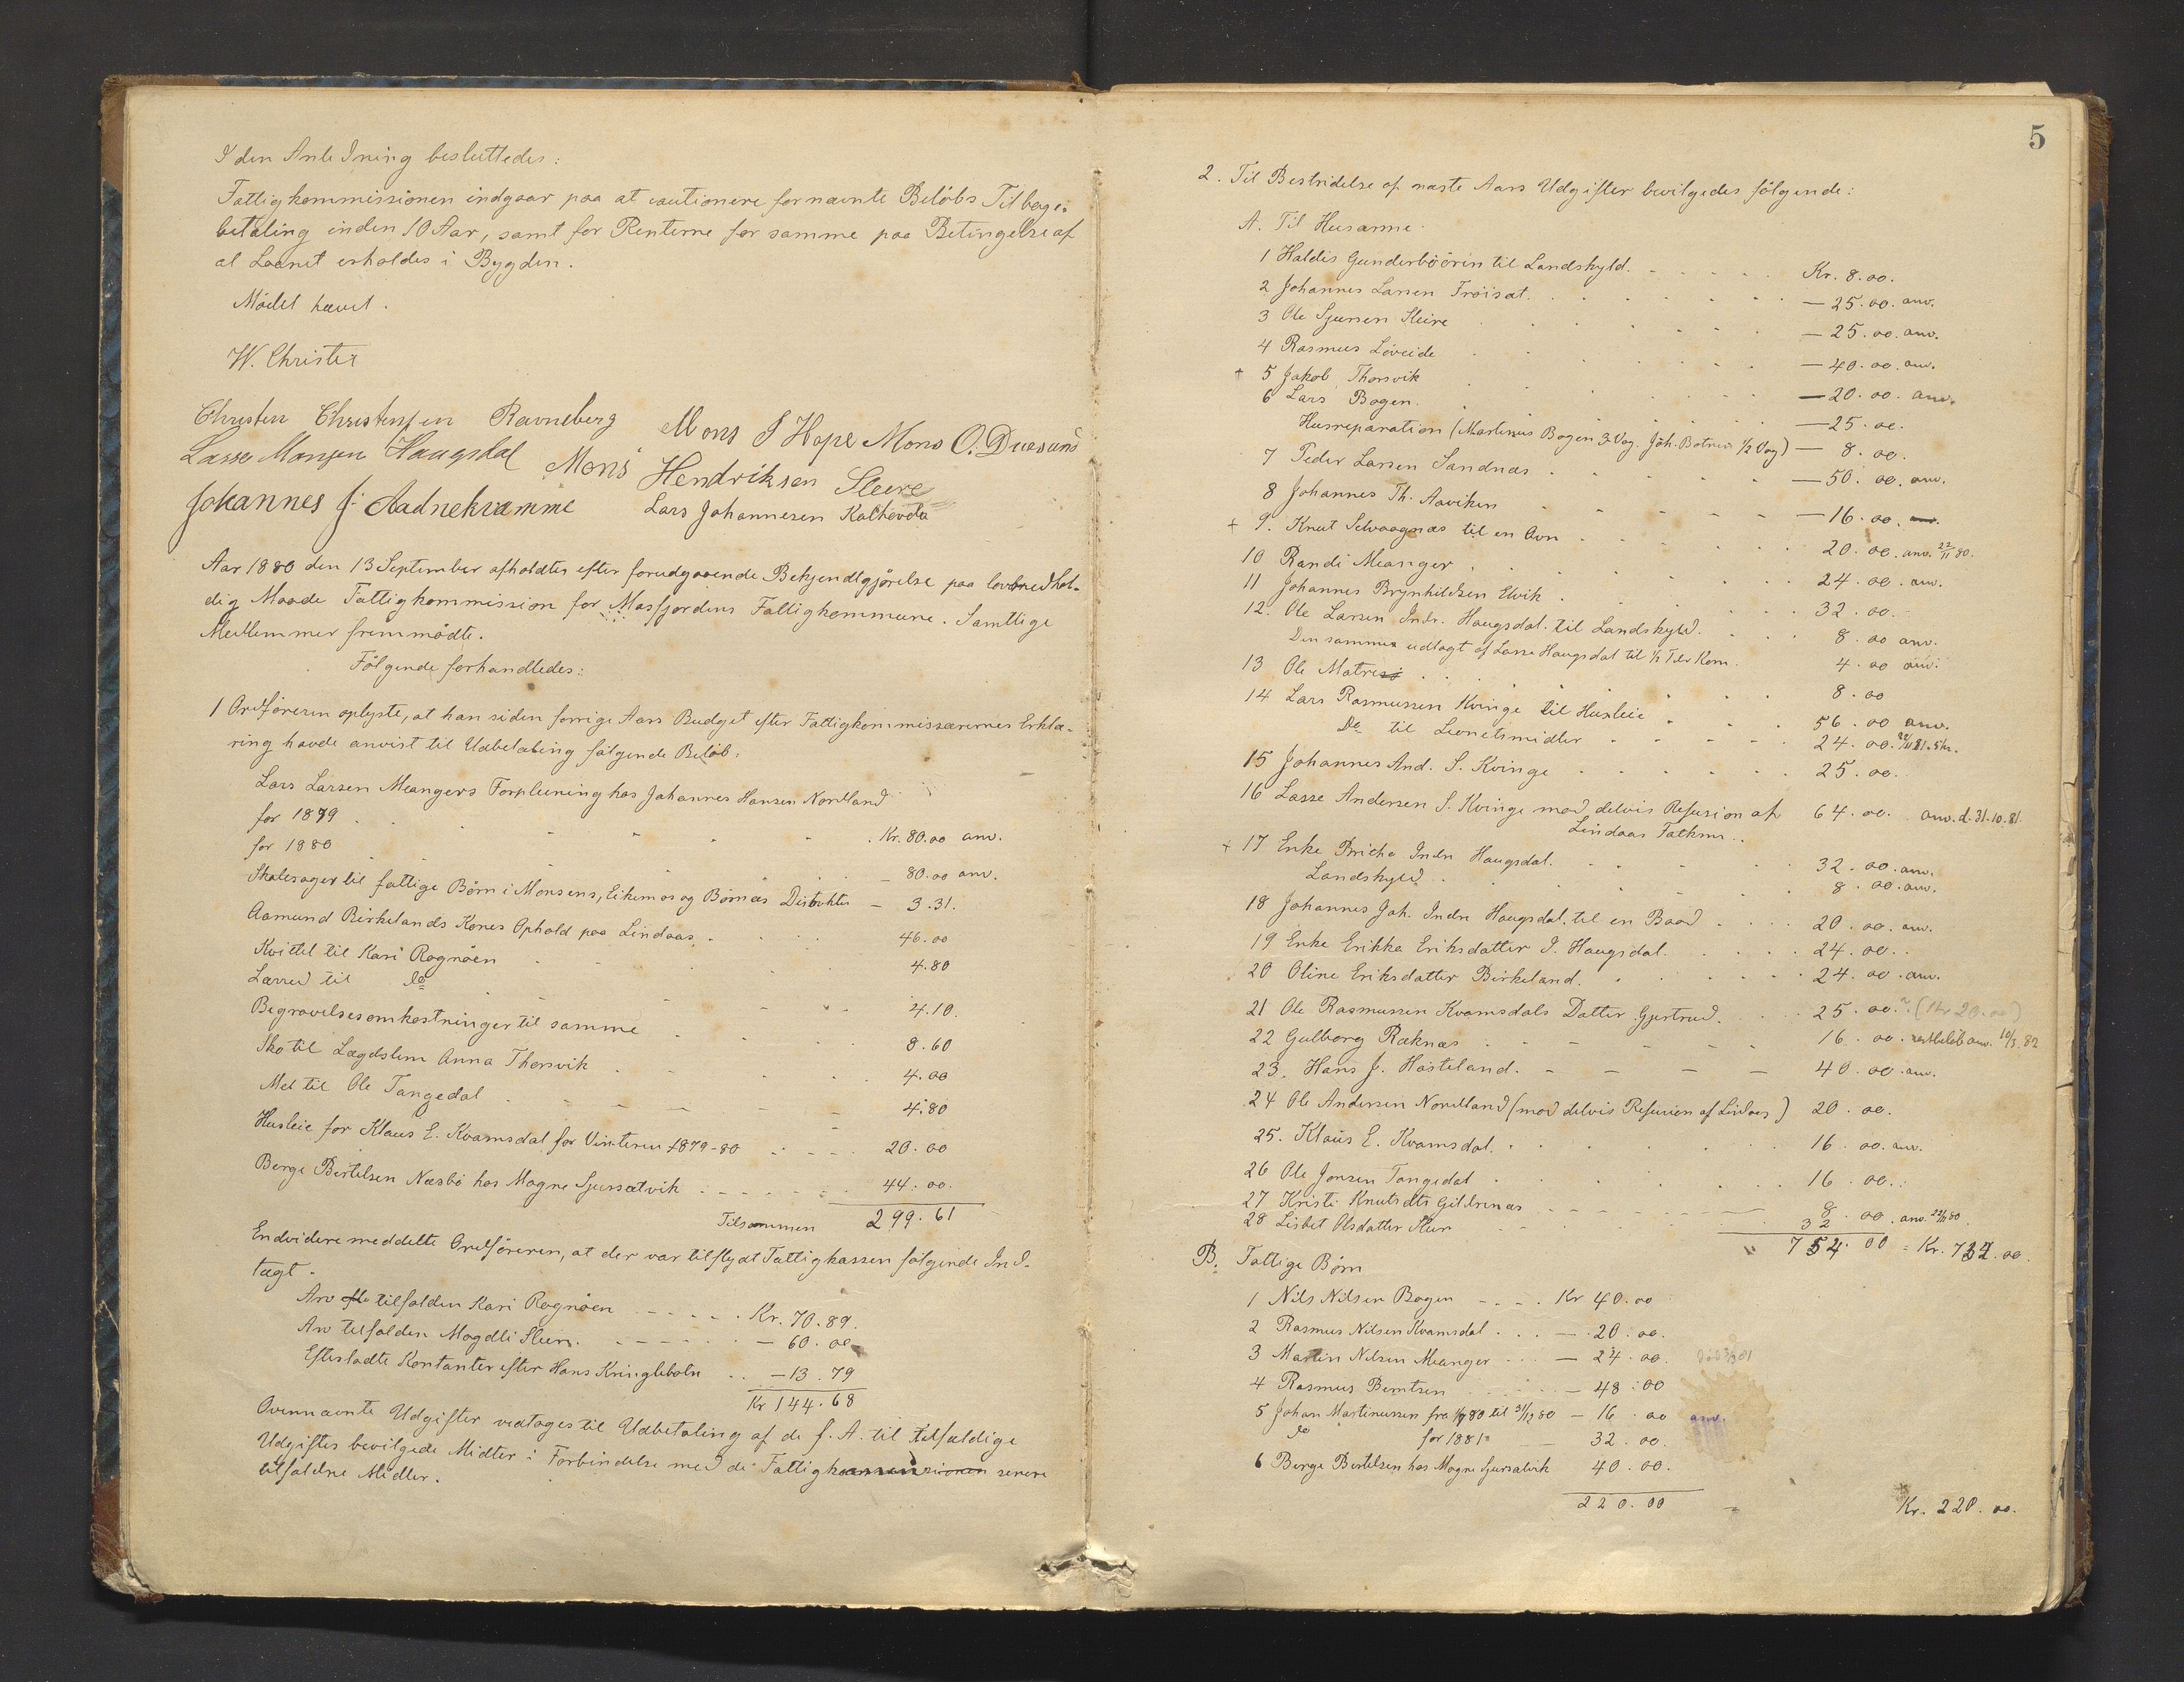 I den Anledning besluttedes:
Fattigkommissionen indgaar paa at cautionere for nævnte Beløbs Tilbage-
betaling inden 10 Aar, samt for Renterne for samme paa Betingelse af
at Laanet erholdes i Bygden.
Mødet hævet.
W. Christie
Christen Christensen Ravneberg Mons J Hope Mons O. Duesund
Lasse Monsen Haugsdal Mons Hendriksen Sleire
Johannes J. Aadnekvamme Lars Johannesen Kalhovda
Aar 1880 den 13 September afholdtes efter forudgaaende Bekjendtgjørelse paa lovbnedhol-
dig Maade Fattigkommission for Masfjordens Fattigkommune. Samtlige
Medlemmer fremmødte.
Følgende forhandledes:
1 Ordføreren oplyste, at han siden forrige Aars Budget efter Fattigkommissærernes Erklæ-
ring havde anvist til Udbetaling følgende Beløb:
Lars Larsen Meangers Forpleining hos Johannes Hansen Nordland
for 1879 . . . . . Kr. 80.00 anv.
for 1880 . . . . . — 80.00 anv.
Skolesager til fattige Børn i Monsens, Eikemos og Børnæs Distrikter — 3.31.
Aamund Birkelands Kones Ophold paa Lindaas . . . 46.00
Kvittel til Kari Rognøen . . . 4.80
Lærred til do . . . 4.10.
Begravelsesomkostninger til samme . . . 8.60
Sko til Lægdslem Anna Thorsvik . . . 4.00
Mel til Ole Tangedal . . . 4.80
Husleie for Klaus E. Kvamsdal for Vinteren 1879-80 . . . 20.00
Berge Bertelsen Næsbø hos Magne Sjursætvik . . . 44.00.
Tilsammen 299.61
Endvidere meddelte Ordføreren, at der var tilflydt Fattigkassen følgende Ind-
tægt.
Arv tilfalden Kari Rognøen . . . Kr. 70.89.
Arv tilfalden Magdli Sleire . . . — 60.00
Efterladte Kontanter efter Hans Kringlebotn . . — 13.79
Kr 144.68
Ovennævnte Udgifter vedtages til Udbetaling af de f. A. til tilfældige
Udgifter bevilgede Midler i Forbindelse med de Fattigkassen senere
tilfaldne Midler.
5
2. Til Bestridelse af næste Aars Udgifter bevilgedes følgende:
A. Til Husarme.
1 Haldis Gunderbøøren til Landskyld. . . . Kr. 8.00.
2 Johannes Larsen Trøisæt. . . . — 25.00. anv.
3 Ole Sjursen Sleire . . . — 25.00. anv.
4 Rasmus Løveide . . . — 40.00. anv.
+ 5 Jakob Thorsvik . . . — 20.00. anv.
6 Lars Bogen. . . . — 25.00.
Husreparation (Martinus Bogen 3 Vog. Joh. Botnen 1/2 Vog) — 8.00.
7 Peder Larsen Sandnæs . . . — 50.00. anv.
8 Johannes Th. Aaviken . . . — 16.00. anv.
+ 9. Knut Selvaagnæs til en Ovn . . . 20.00. anv. 22/11 80.
10 Randi Meanger . . . 24.00. anv.
11 Johannes Brynhildsen Elvik . . . 32.00.
12. Ole Larsen Indr. Haugsdal. til Landskyld. . . . 8.00 anv.
Den samme udlagt af Lasse Haugsdal til 1/2 Tde Korn. 4.00 anv.
13 Ole Matre . . . 8.00
14 Lars Rasmussen Kvinge til Husleie . . . 56.00 anv.
Do til Levnetsmidler . . . 24.00. 22/11 81. 5 kr.
15 Johannes And. S. Kvinge . . . 25.00.
16 Lasse Andersen S. Kvinge mod delvis Refusion af 64.00. anv. d. 31.10.81.
Lindaas Fatkms.
+ 17 Enke Brithe Indre Haugsdal. . . . 32.00. anv.
Landskyld . . . 8.00. anv.
18 Johannes Joh. Indre Haugsdal. til en Baad . . . 20.00. anv.
19 Enke Erikka Eriksdatter I. Haugsdal. . . . 24.00. .
20 Oline Eriksdatter Birkeland. . . . 24.00. anv.
21 Ole Rasmussen Kvamsdals Datter Gjertrud. . . . 25.00. (Kr 20.00)
22 Gulborg Røknæs . . . 16.00. restbeløb anv. 10/3. 82
23. Hans J. Hosteland. — — — — 40.00. anv.
24 Ole Andersen Nordland (mod delvis Refusion af Lindaas) 20.00.
25. Klaus E. Kvamsdal. . . . 16.00. anv.
26 Ole Jonsen Tangedal . . . 16.00.
27 Kristi Knutsdtr Gildrenæs . . . 8.00. anv. 22/11 80.
28 Lisbet Olsdatter Sleir . . . 32
754.00 = Kr. 732.00.
B. Fattige Børn
1 Nils Nilsen Bogen . . . Kr 40.00
2 Rasmus Nilsen Kvamsdal . . . — 20.00.
3 Martin Nilsen Meanger . . . — 24.00.
4 Rasmus Berntsen . . . — 48.00
5 Johan Martinussen fra 1/7 80 til 31/12 80 — 16.00 anv.
do for 1881 — 32.00.
6 Berge Bertelsen hos Magne Sjursætvik 40.00.
220.00 — Kr. 220.00.